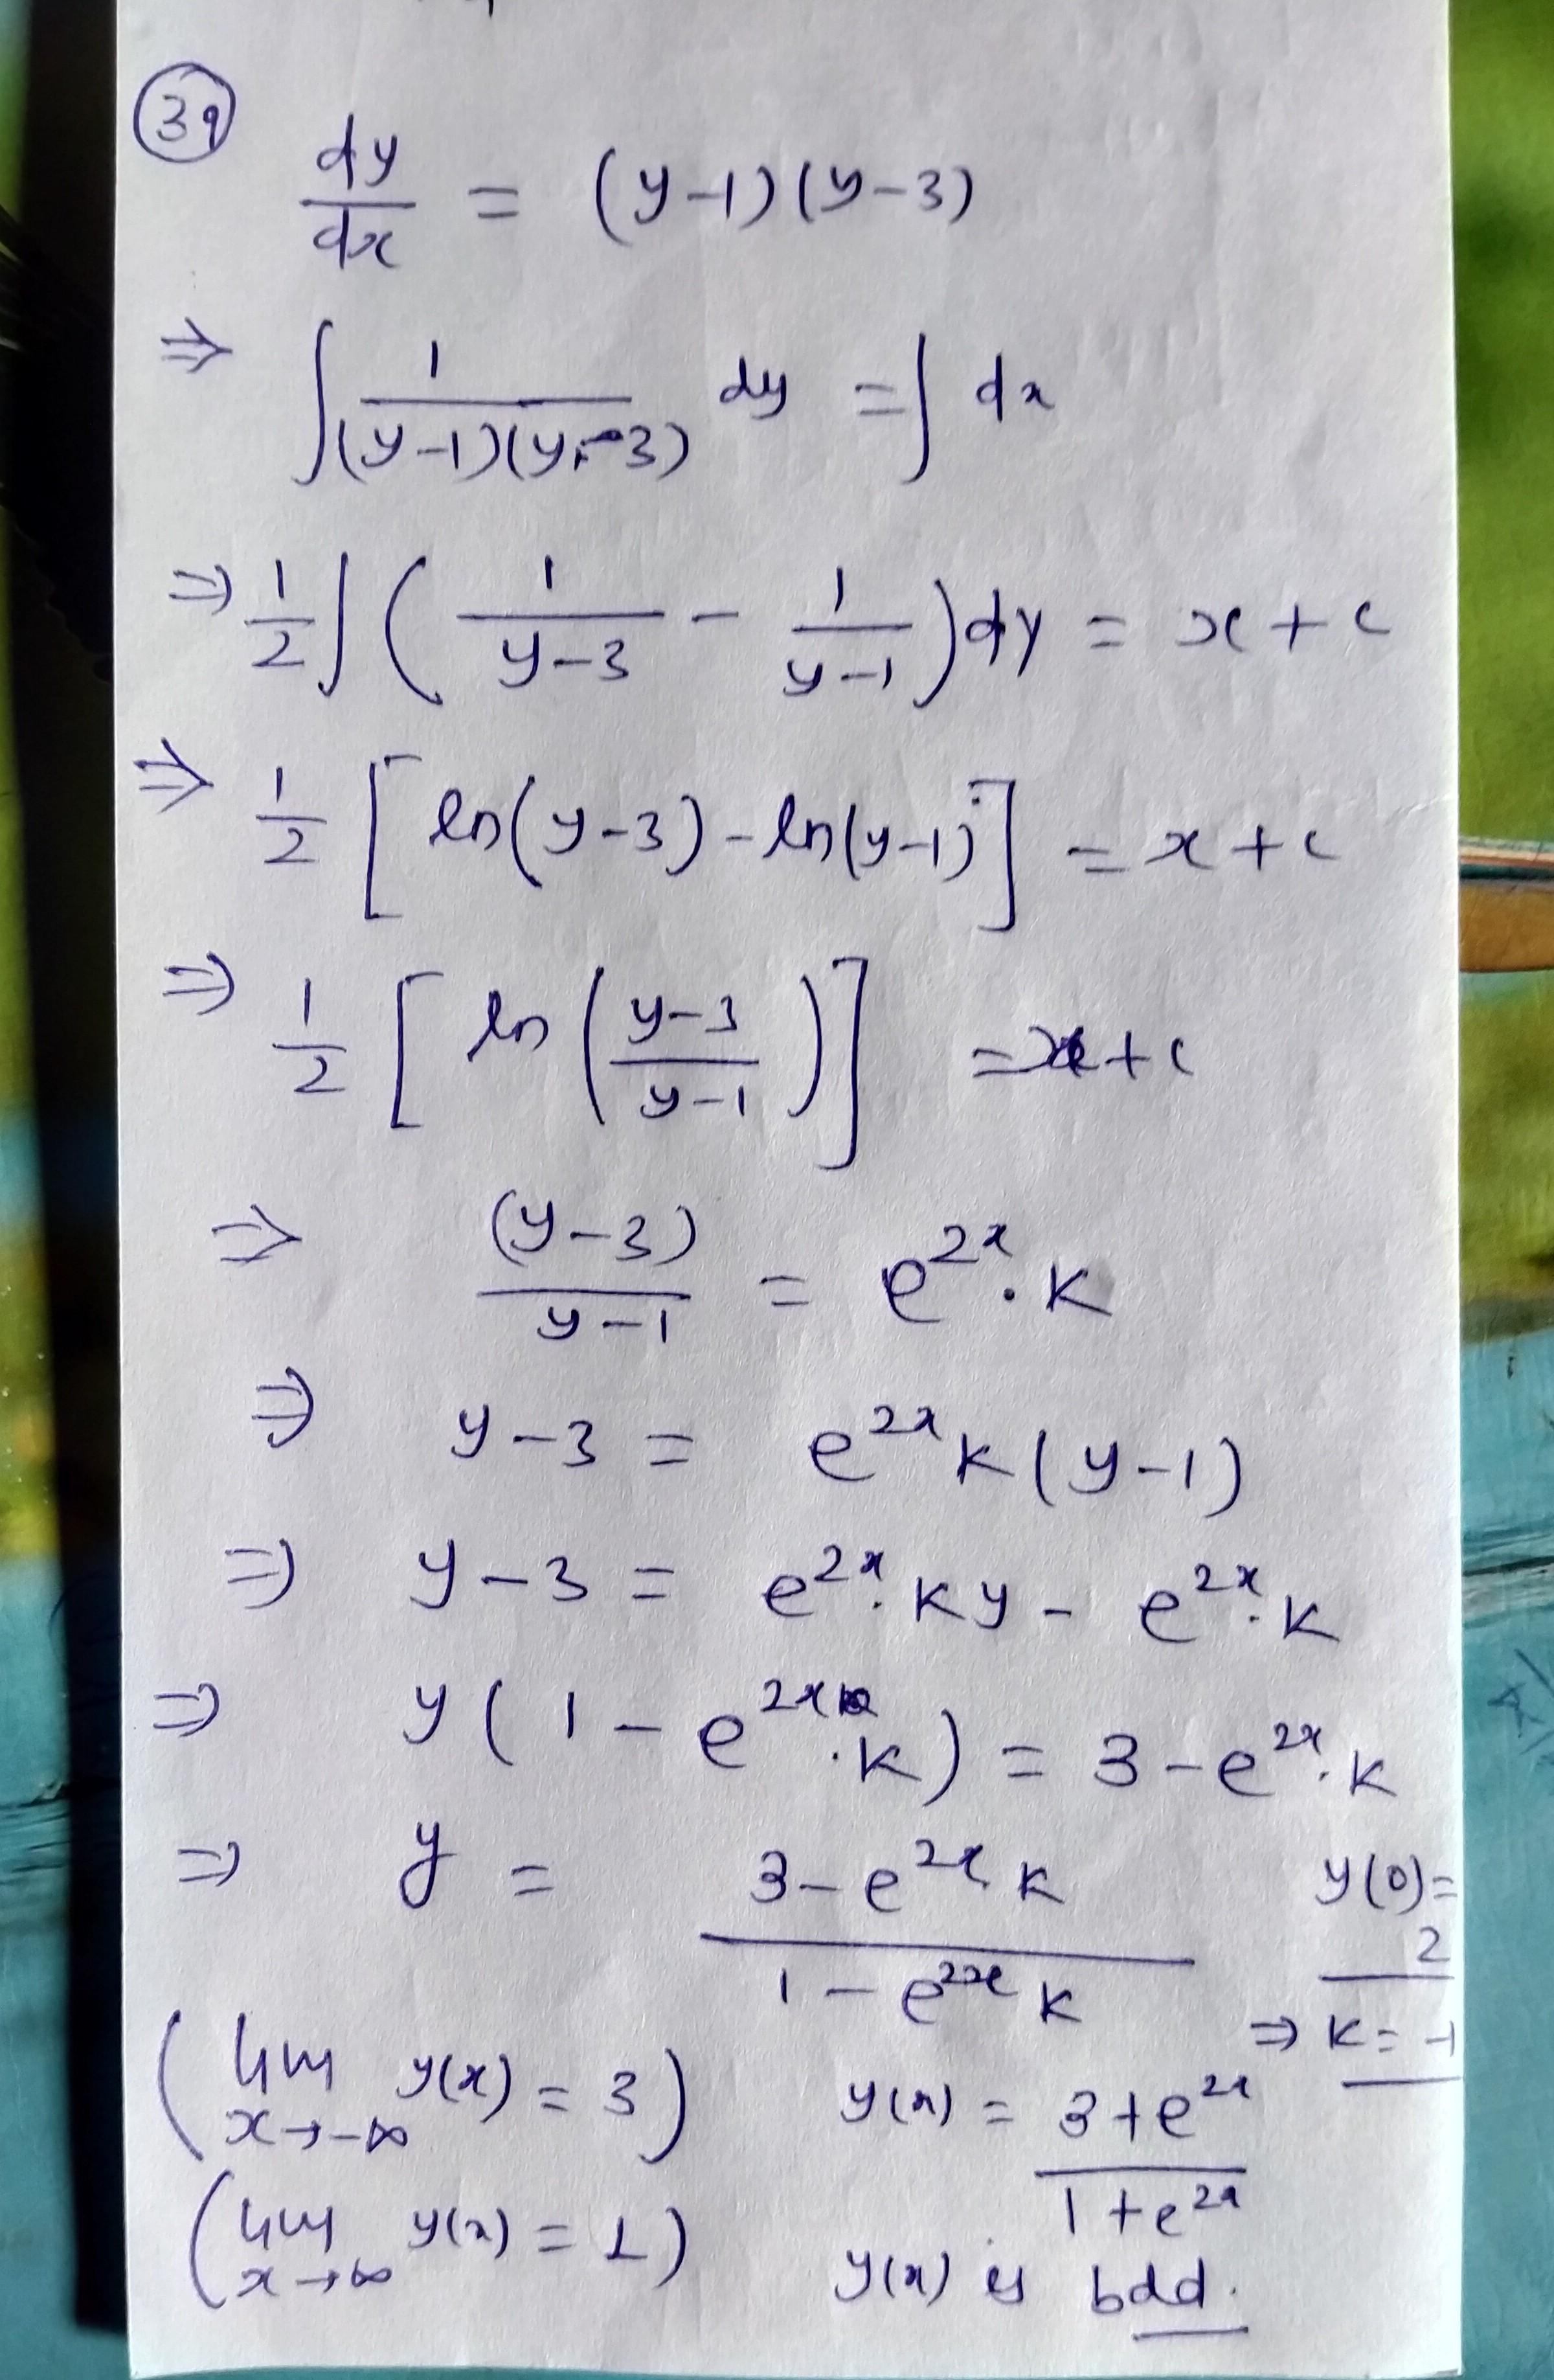 39
dy/dx = (y-1)(y-3)
⇒ ∫ 1/((y-1)(y-3)) dy = ∫ dx
⇒ 1/2 ∫ ( 1/(y-3) - 1/(y-1) ) dy = x + c
⇒ 1/2 [ ln(y-3) - ln(y-1) ] = x + c
⇒ 1/2 [ ln ( (y-3)/(y-1) ) ] = x + c
⇒ (y-3)/(y-1) = e^{2x} . K
⇒ y-3 = e^{2x} K (y-1)
⇒ y-3 = e^{2x} . K y - e^{2x} . K
⇒ y ( 1 - e^{2x} . K ) = 3 - e^{2x} . K
⇒ y = (3 - e^{2x} K)/(1 - e^{2x} K)
y(0) = 2
⇒ K = -1
( lim x→-∞ y(x) = 3 )
y(x) = (3 + e^{2x})/(1 + e^{2x})
( lim x→∞ y(x) = 1 )
y(x) is bdd.